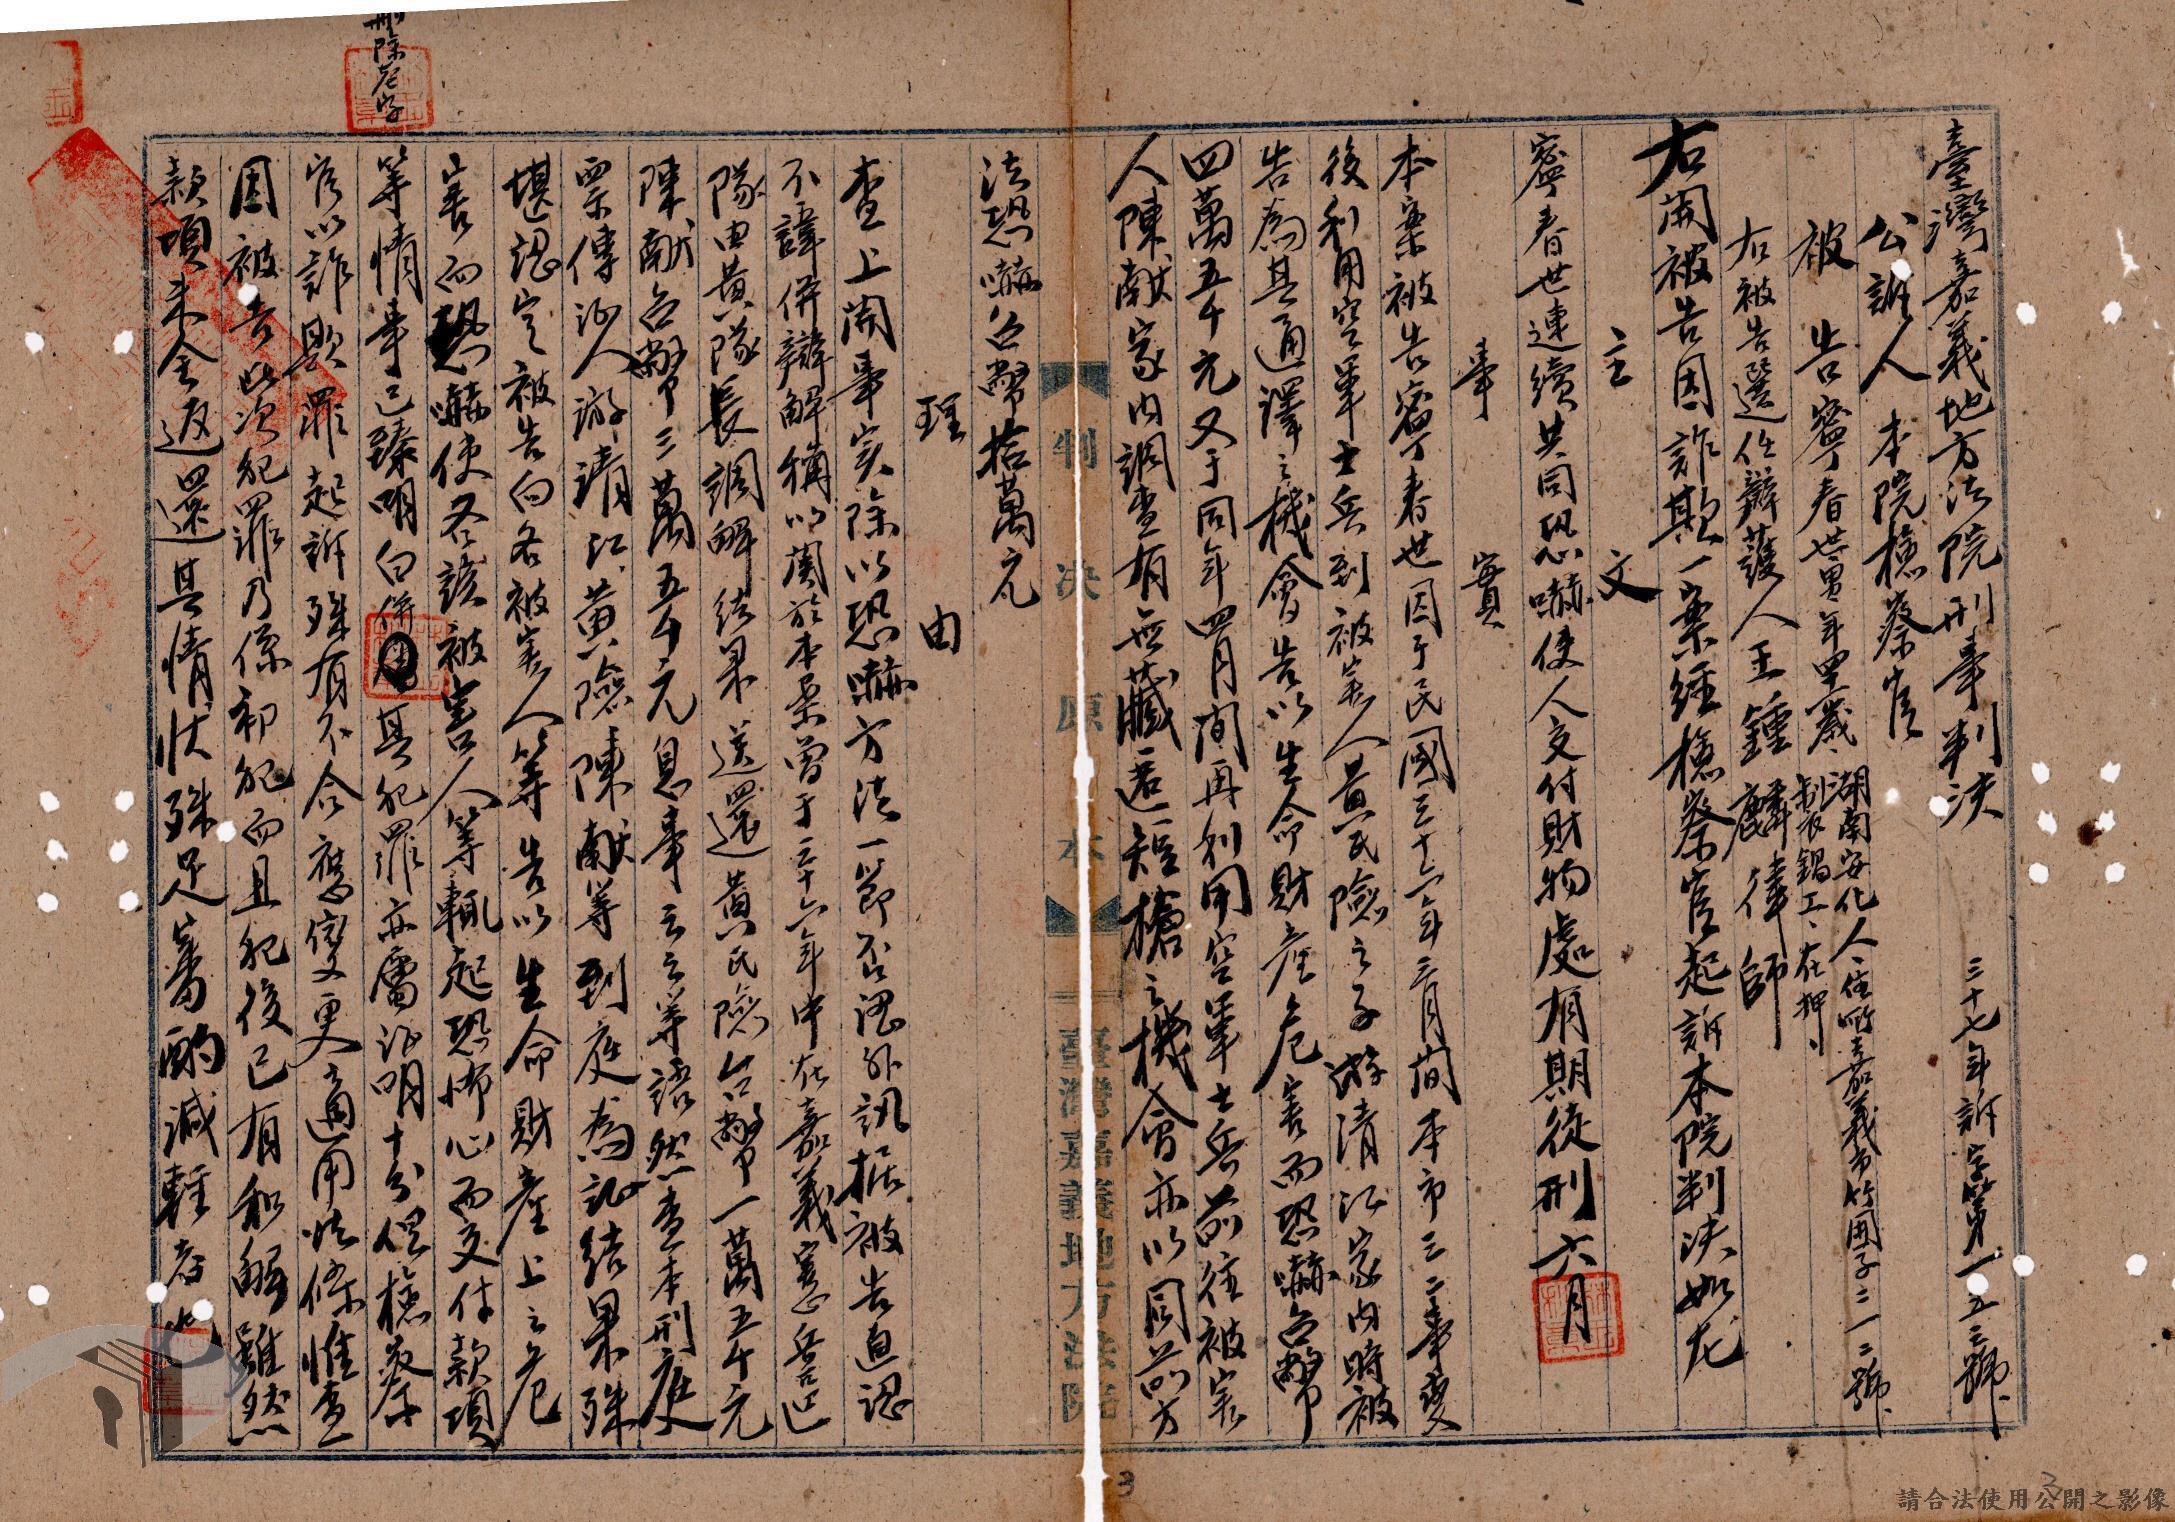 臺灣嘉義地方法院刑事判決
三十七年訴字第一五三號
公訴人 本院檢察官
被告 寧春世 男年 歲湖南安化人住所嘉義市竹圍子二一二號
製鍋工在押
右被告選任辯護人王鍾麟律師
右開被告因詐欺一案經檢察官起訴本院判決如左
主文
寧春世連續共同恐嚇使人交付財物處有期徒刑六月
事實
本案被告寧春世因于民國三十六年三月間本市三二事變
後利用空軍士兵到被害人黃氏險之子游清江家內時被
告為其通譯之機會告以生命財產危害而恐嚇台幣
四萬五千元又于同年四月間再利用空軍士兵前往被害
人陳獻家內調查有無藏匿短槍之機會亦以同前方
法恐嚇台幣拾萬元
判決原本
臺灣嘉義地方法院
理由
查上開事實除以恐嚇方法一節否認外訊据被告直認
不諱併辯解稱以關於本案曾于三十六年中在嘉義憲兵
隊由黃隊長調解結果送還黃氏險台幣一萬五千元
陳獻台幣三萬五千元息事云云等語然查本刑庭
票傳証人游清江黃險陳獻等到庭為証結果殊
堪認定被告向各被害人等告以生命財產上之危
害而恐嚇使各該被害人等輒起恐怖心而交付款項
等情事已臻明白併 其犯罪亦屬証明十分但檢察
官以詐欺罪起訴殊有不合應變更適用法條惟查
因被告此次犯罪乃係初犯而且犯後已有和解雖然
款項未全返還其情狀殊足審酌減輕者也
刪除左字
3
3
請合法使用公開之影像